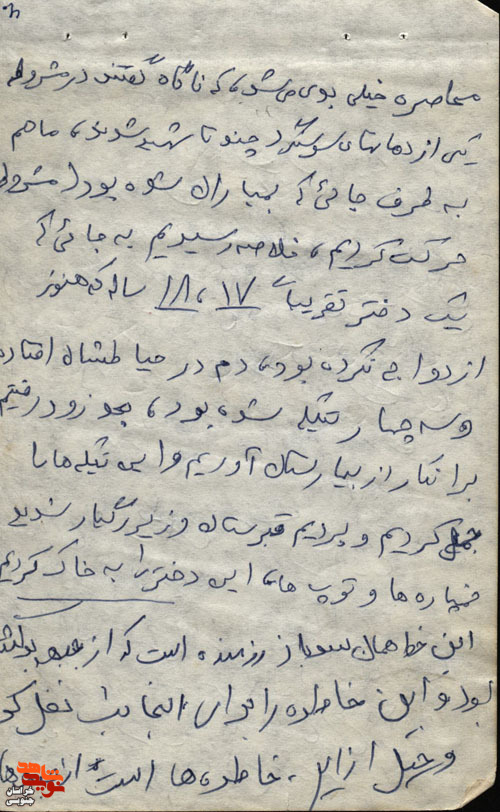 محاصره خیلی بودی می‌شود، که ناگاه گفتند در مشروطه
یکی از دهاتهای سوسنگرد چند تا شهید شوند، ما هم
به طرف جائی که بمباران شده بود (مشروطه
حرکت کردیم، خلاصه رسیدیم به جائی که
یک دختر تقریباً ۱۷، ۱۸ ساله که هنوز
ازدواج نکرده بود، دم در حیاطشان افتاده
و سه چهار تیکه شده بود، بعد زود رفتیم
برانکار از بیمارستان آوردیم و این تیکه ها را
جمع کردیم و بردیم قبرستان و زیر رگبار شدید
خمپاره ها و توپ ها، این دختر را به خاک کردیم
این خط همان سرباز رزمنده است که از جبهه برگشته
بود و این خاطره را برای اینجانب نقل کرد
و خیلی از این خاطره ها است از
خراسان
جنوبی